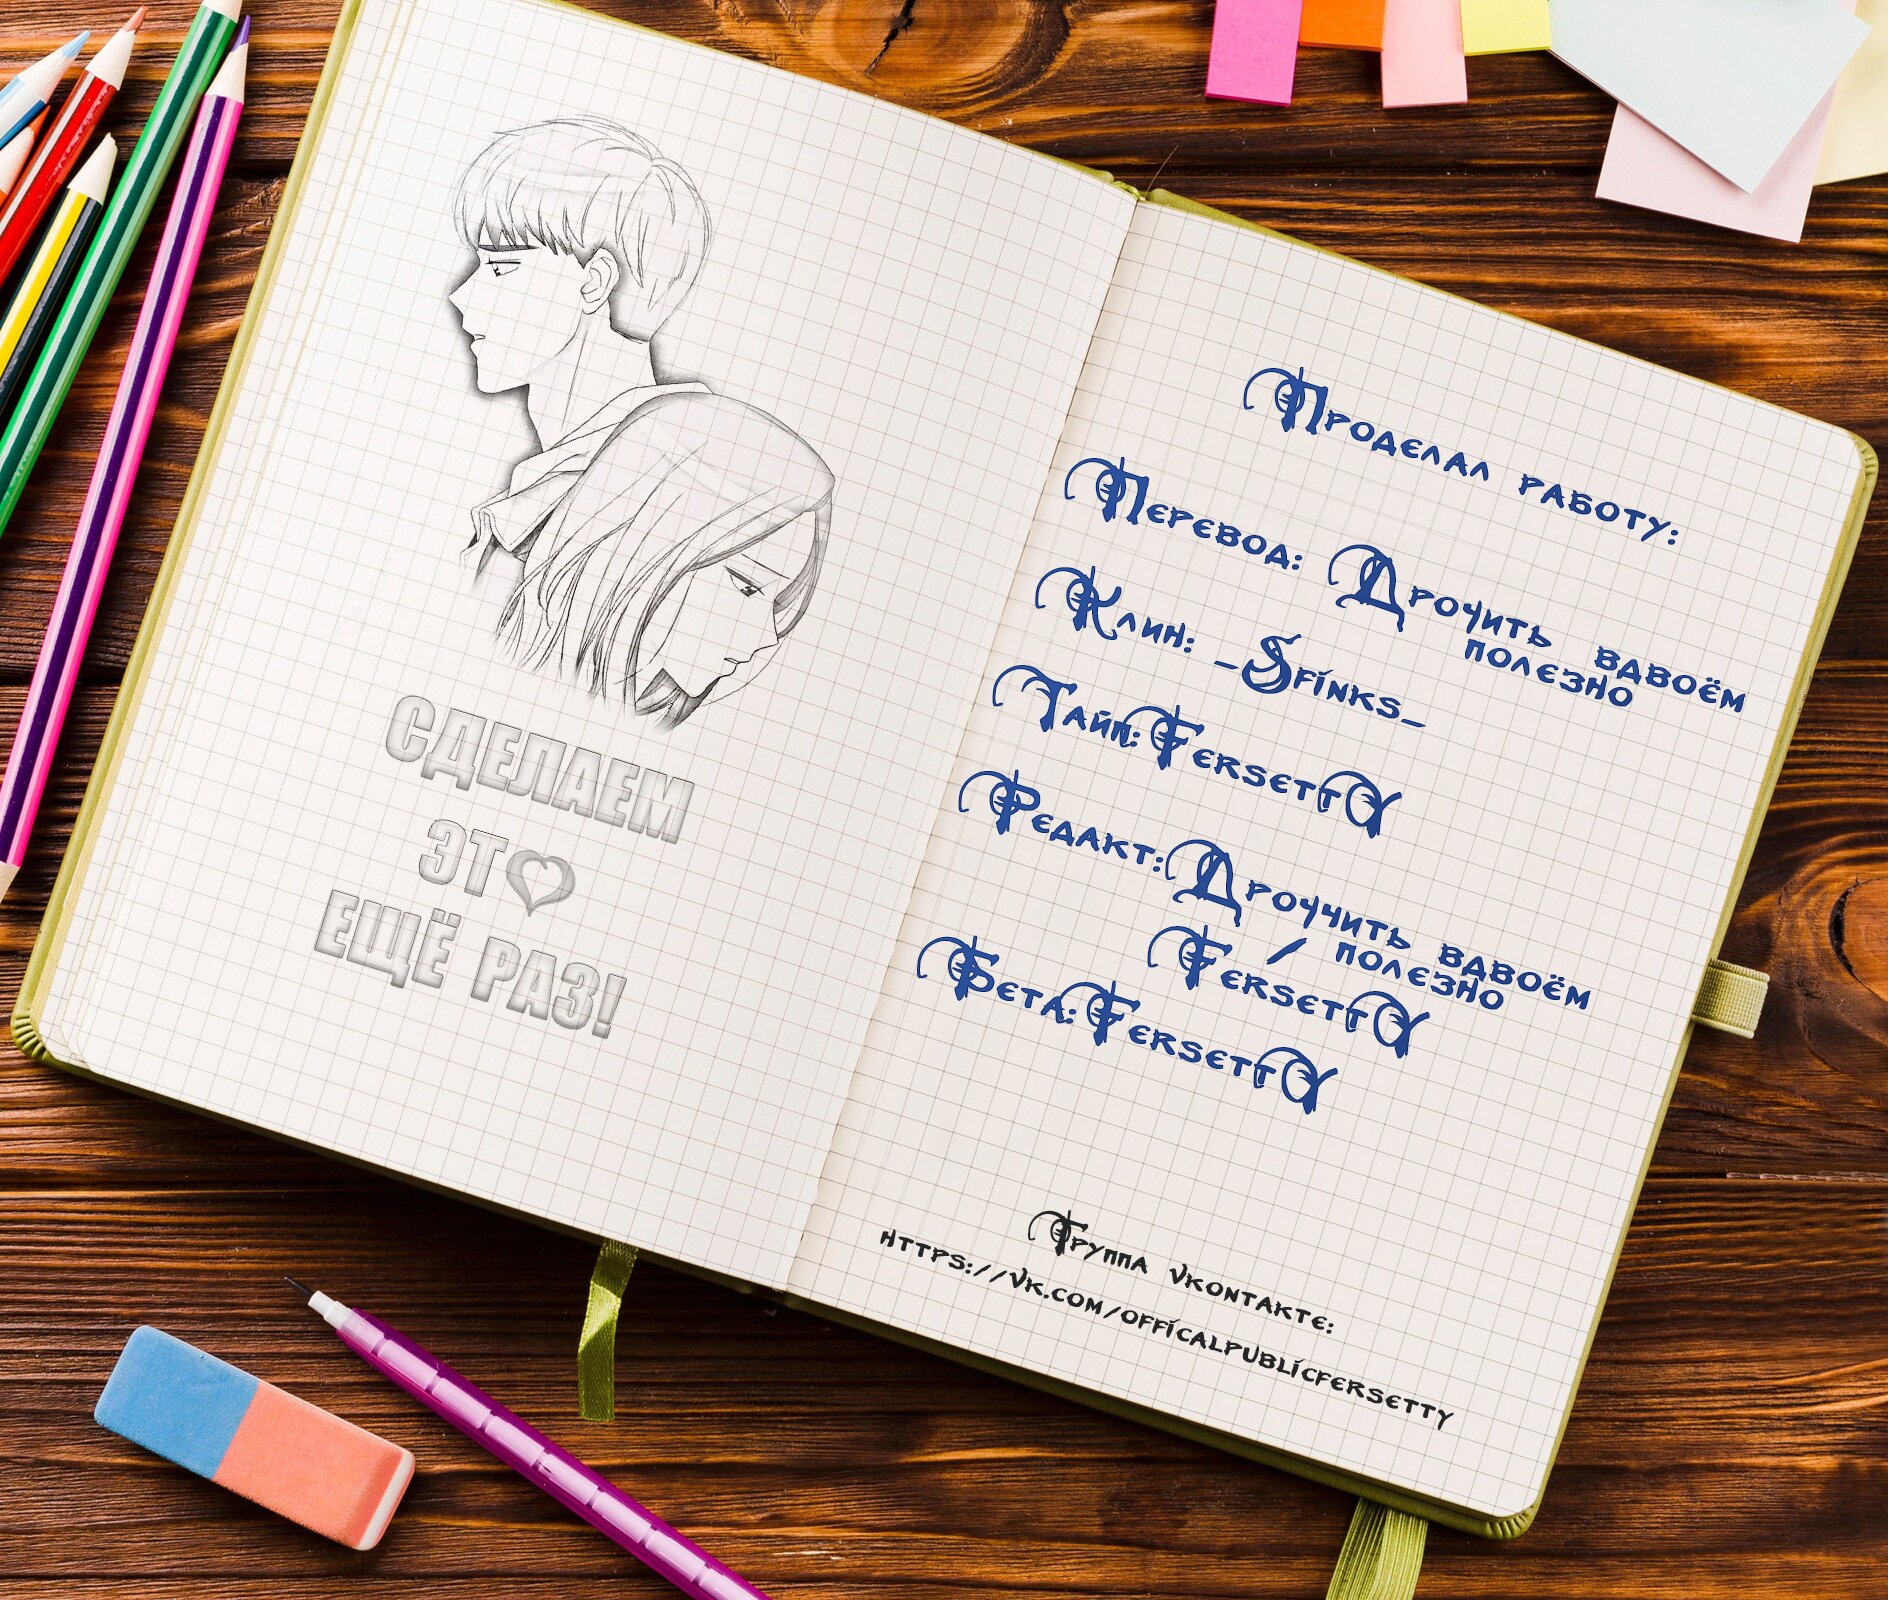 СДЕЛАЕМ
ЭТ♡
ЕЩЁ РАЗ!
Проделал работу:
Перевод: Дрочить вдвоём
полезно
Клин: _Sfinks_
Тайп: FersettY
Редакт: Дроччить вдвоём
/ полезно
FersettY
Бета: FersettY
Группа vkontakte:
https://vk.com/officalpublicfersetty